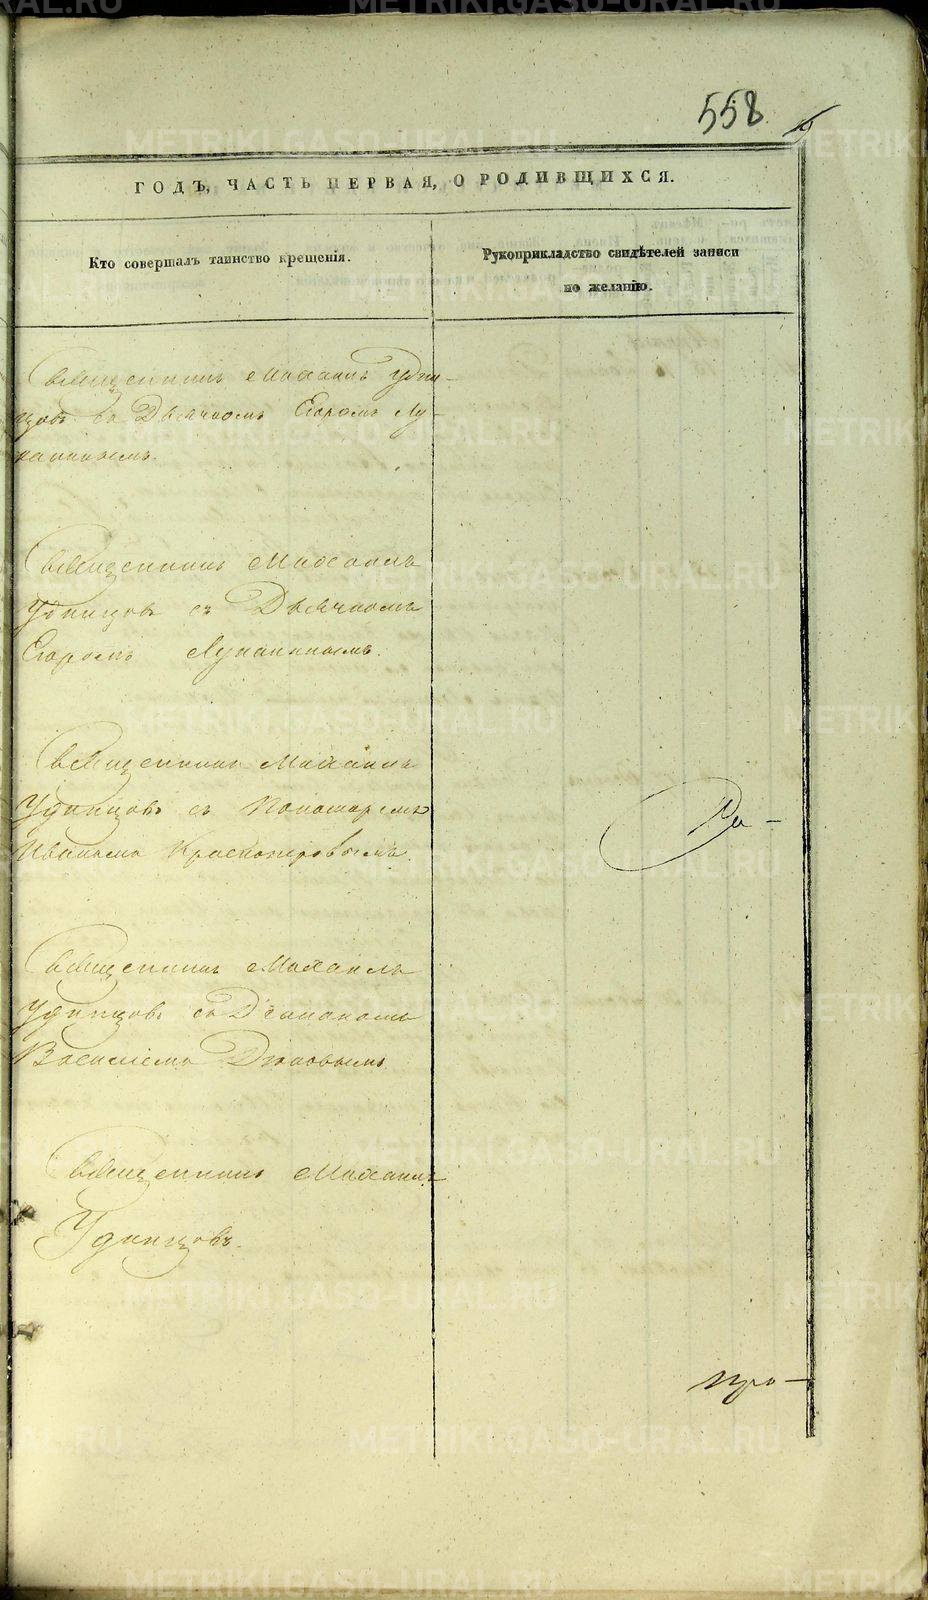 558
ГОДЪ, ЧАСТЬ ПЕРВАЯ, О РОДИВЩИХСЯ.
Кто совершалъ таинство крещенія.
Рукоприкладство свидѣтелей записи
по желанію.
Священникъ Михаилъ Удин-
цовъ съ Дьячкомъ Егоромъ Лу-
канинымъ.
Священникъ Михаилъ
Удинцовъ съ Дьячкомъ
Егоромъ Луканинымъ.
Священникъ Михаилъ
Удинцовъ съ Пономаремъ
Иваномъ Красноперовымъ.
Ра-
Священникъ Михаилъ
Удинцовъ съ Діакономъ
Василіемъ
Священникъ Михаилъ
Удинцовъ.
METRIKI.GASO-URAL.RU